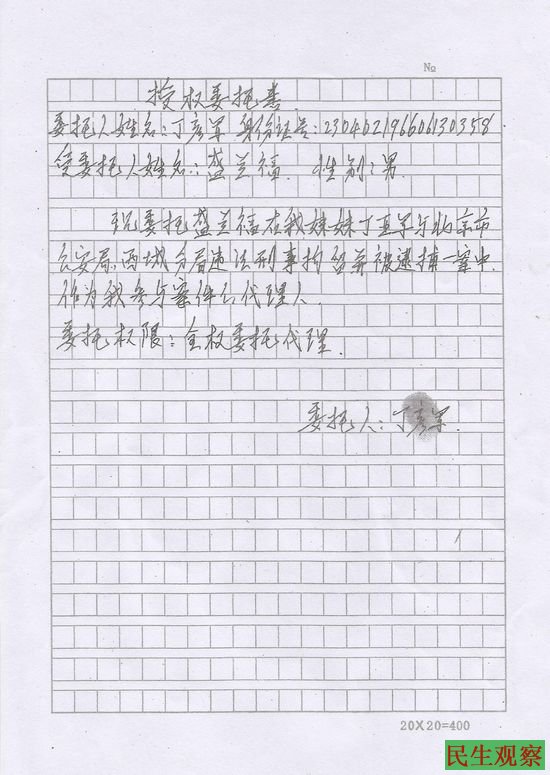 №
授权委托书
委托人姓名:丁彦军 身份证号:230402196606130358
受委托人姓名:盛兰福 性别:男.
现委托盛兰福在我妹妹丁亚军与北京市
公安局西城分局违法刑事拘留并被逮捕一案中.
作为我参与案件的代理人.
委托权限:全权委托代理.
委托人:丁彦军.
20X20=400
民生观察